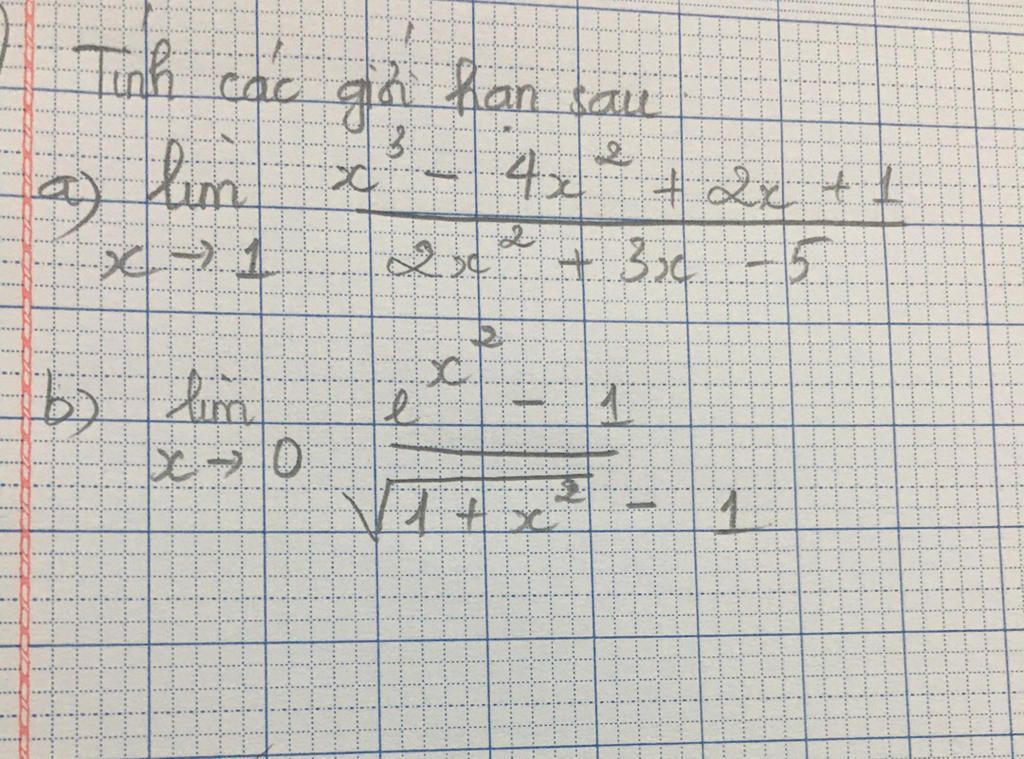 Tính các giới hạn sau
a) lim x³ - 4x² + 2x + 1
x → 1 2x² + 3x - 5
b) lim e^x² - 1
x → 0 √1 + x² - 1